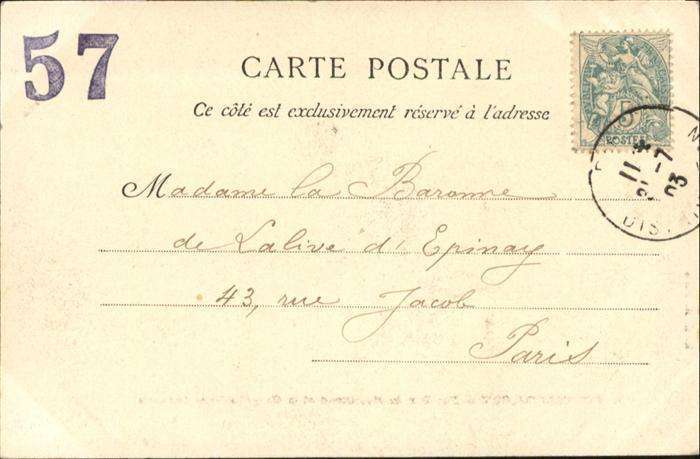 57
CARTE POSTALE
Ce côté est exclusivement réservé à l'adresse
5
POSTES
Madame la Baronne
de Lalive d'Epinay
43, rue Jacob
Paris
11
-7
03
DIST